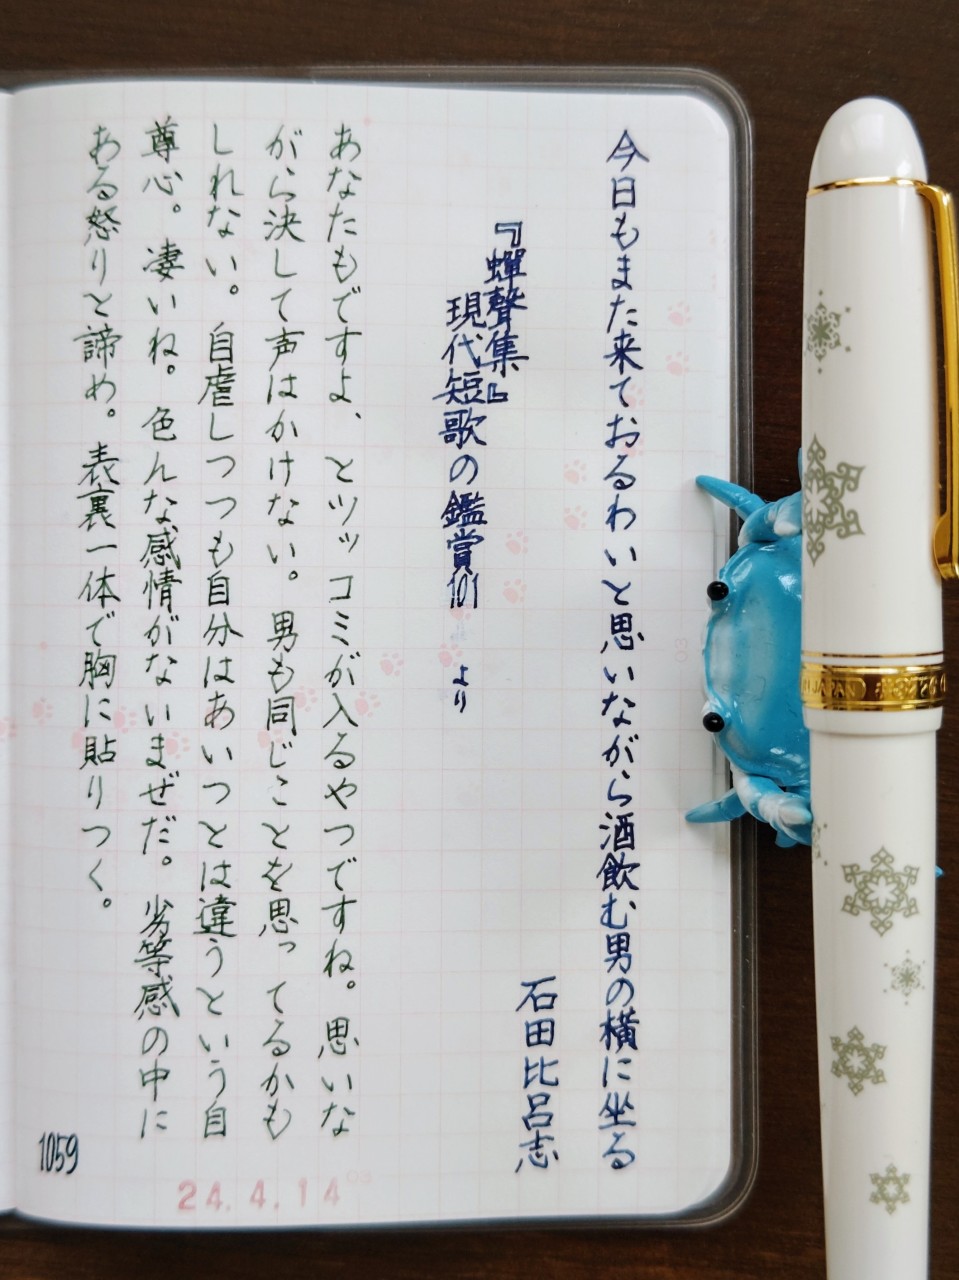 今日もまた来ておるわいと思いながら酒飲む男の横に坐る
石田比呂志
『蟬聲集』
現代短歌の鑑賞101 より
あなたもですよ、とツッコミが入るやつですね。思いな
がら決して声はかけない。男も同じことを思ってるかも
しれない。自虐しつつも自分はあいつとは違うという自
尊心。凄いね。色んな感情がないまぜだ。劣等感の中に
ある怒りと諦め。表裏一体で胸に貼りつく。
1059
24.4.14
JAPAN